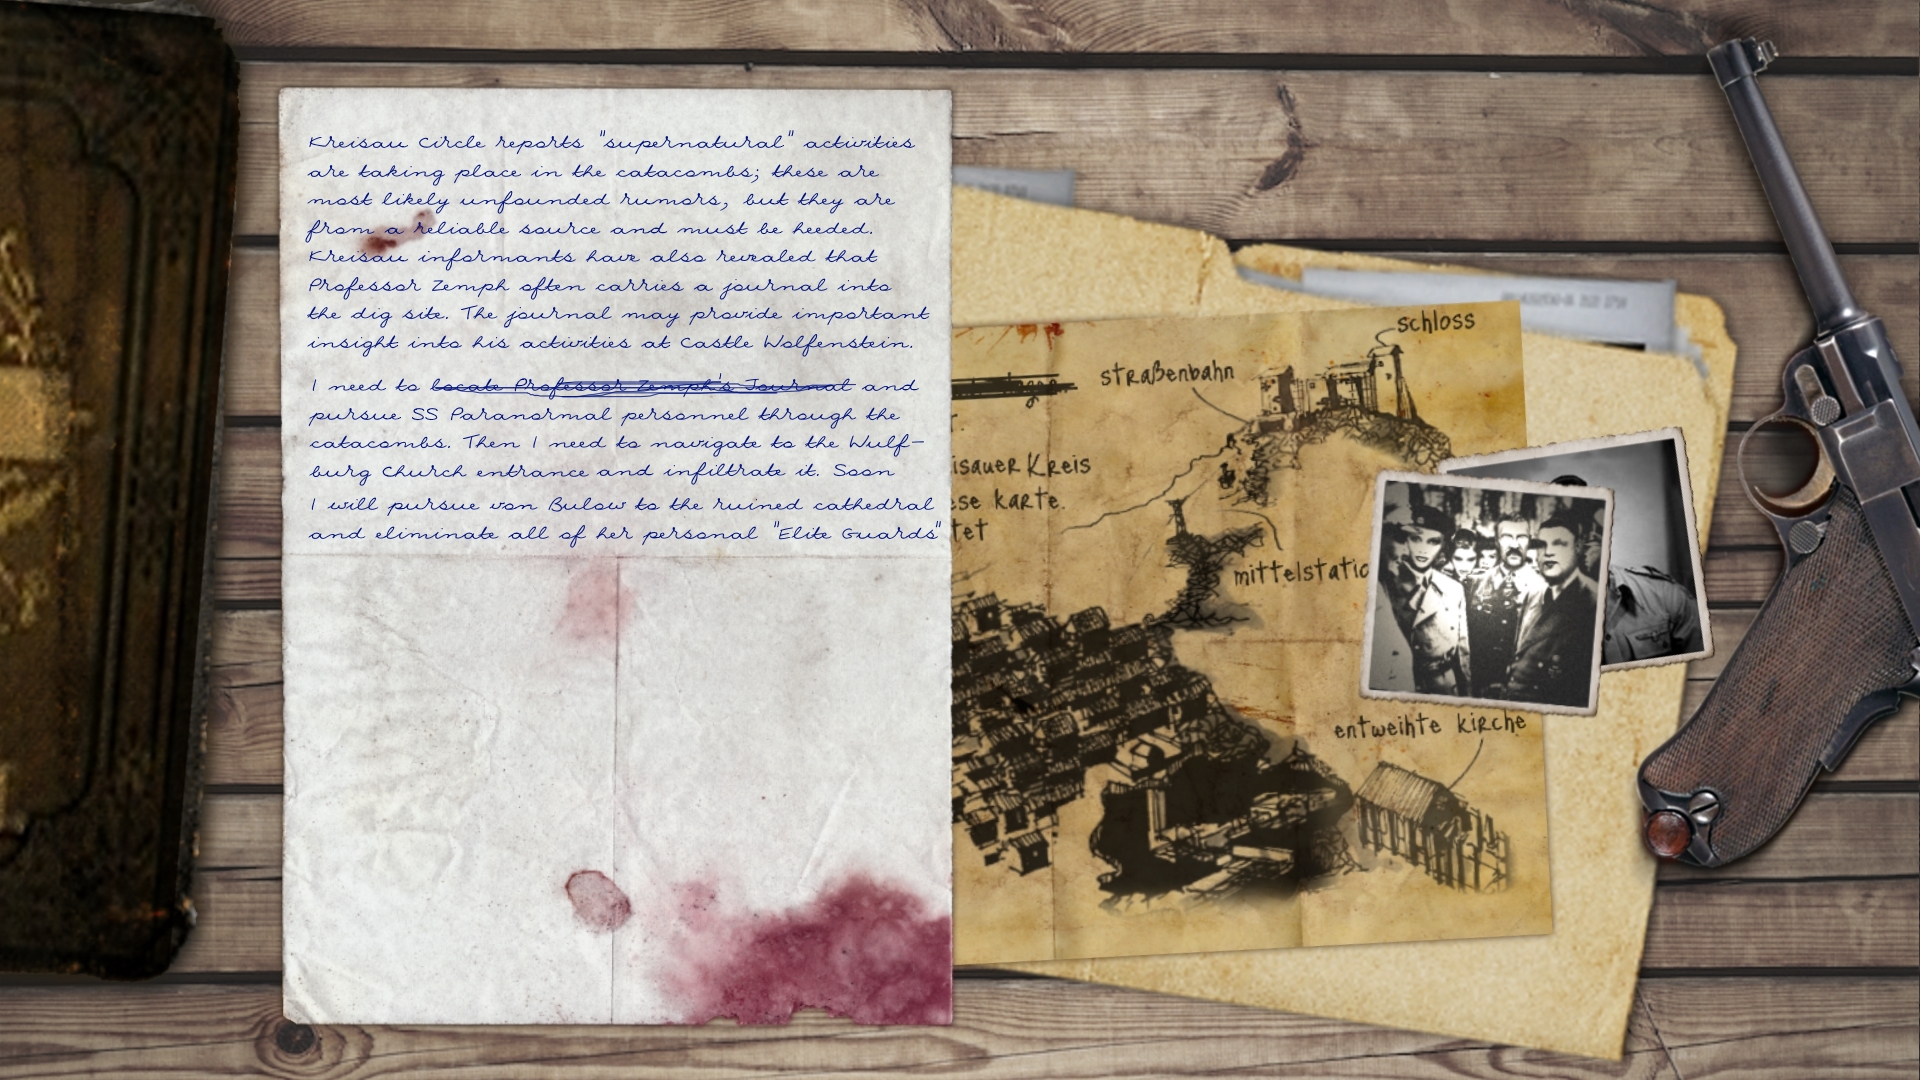 Kreisau Circle reports "supernatural" activities
are taking place in the catacombs; these are
most likely unfounded rumors, but they are
from a reliable source and must be heeded.
Kreisau informants have also revealed that
Professor Zemph often carries a journal into
the dig site. The journal may provide important
insight into his activities at Castle Wolfenstein.
I need to locate Professor Zemph's Journal and
pursue SS Paranormal personnel through the
catacombs. Then I need to navigate to the Wulf-
burg Church entrance and infiltrate it. Soon
I will pursue von Bulow to the ruined cathedral
and eliminate all of her personal "Elite Guards"
schloss
straßenbahn
isauer Kreis
ese karte.
tet
mittelstatio
entweihte kirche